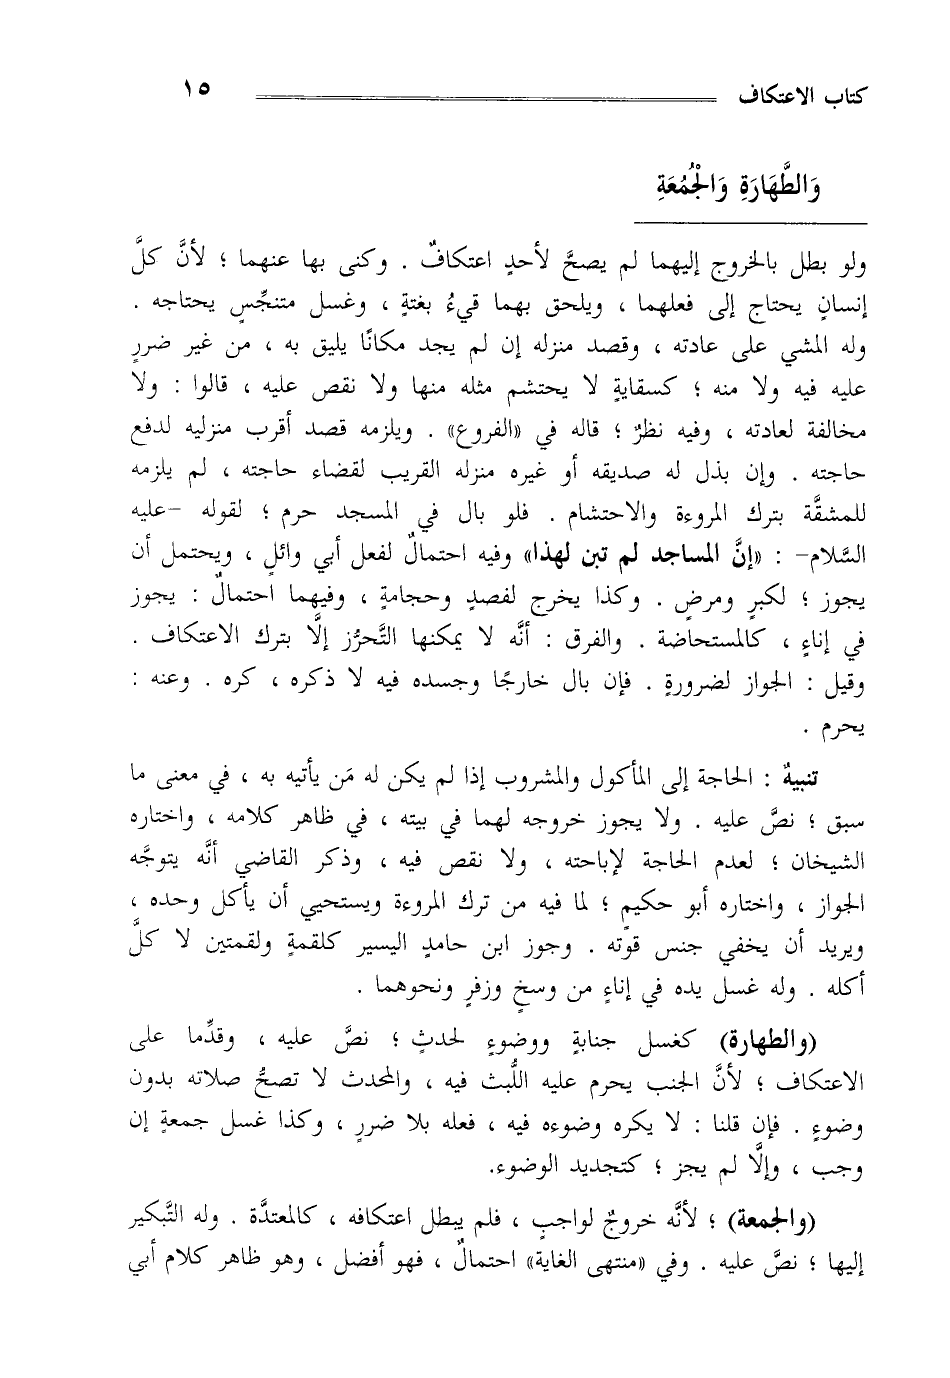 كتاب الاعتكاف ١٥
وَالطَّهَارَةِ وَالْجُمُعَةِ
ولو بطل بالخروج إليهما لم يصحَّ لأحدٍ اعتكافٌ . وكنى بها عنهما ؛ لأنَّ كلَّ
إنسانٍ يحتاج إلى فعلهما ، ويلحق بهما قيءُ بغتةٍ ، وغسل متنجِّسٍ يحتاجه .
وله المشي على عادته ، وقصد منزله إن لم يجد مكانًا يليق به ، من غير ضررٍ
عليه فيه ولا منه ؛ كسقايةٍ لا يحتشم مثله منها ولا نقص عليه ، قالوا : ولا
مخالفة لعادته ، وفيه نظرٌ ؛ قاله في «الفروع» . ويلزمه قصد أقرب منزليه لدفع
حاجته . وإن بذل له صديقه أو غيره منزله القريب لقضاء حاجته ، لم يلزمه
للمشقَّة بترك المروءة والاحتشام . فلو بال في المسجد حرم ؛ لقوله -عليه
السَّلام- : «إنَّ المساجد لم تبن لهذا» وفيه احتمالٌ لفعل أبي وائلٍ ، ويحتمل أن
يجوز ؛ لكبرٍ ومرضٍ . وكذا يخرج لفصدٍ وحجامةٍ ، وفيهما احتمالٌ : يجوز
في إناءٍ ، كالمستحاضة . والفرق : أنَّه لا يمكنها التَّحرُّز إلَّا بترك الاعتكاف .
وقيل : الجواز لضرورةٍ . فإن بال خارجًا وجسده فيه لا ذكره ، كره . وعنه :
يحرم .
تنبيهٌ : الحاجة إلى المأكول والمشروب إذا لم يكن له مَن يأتيه به ، في معنى ما
سبق ؛ نصَّ عليه . ولا يجوز خروجه لهما في بيته ، في ظاهر كلامه ، واختاره
الشيخان ؛ لعدم الحاجة لإباحته ، ولا نقص فيه ، وذكر القاضي أنَّه يتوجَّه
الجواز ، واختاره أبو حكيمٍ ؛ لما فيه من ترك المروءة ويستحيي أن يأكل وحده ،
ويريد أن يخفي جنس قوته . وجوز ابن حامدٍ اليسير كلقمةٍ ولقمتين لا كلَّ
أكله . وله غسل يده في إناءٍ من وسخٍ وزفرٍ ونحوهما .
(والطهارة) كغسل جنابةٍ ووضوءٍ لحدثٍ ؛ نصَّ عليه ، وقدِّما على
الاعتكاف ؛ لأنَّ الجنب يحرم عليه اللُّبث فيه ، والمحدث لا تصحُّ صلاته بدون
وضوءٍ . فإن قلنا : لا يكره وضوءه فيه ، فعله بلا ضررٍ ، وكذا غسل جمعةٍ إن
وجب ، وإلَّا لم يجز ؛ كتجديد الوضوء.
(والجمعة) ؛ لأنَّه خروجٌ لواجبٍ ، فلم يبطل اعتكافه ، كالمعتدَّة . وله التَّبكير
إليها ؛ نصَّ عليه . وفي «منتهى الغاية» احتمالٌ ، فهو أفضل ، وهو ظاهر كلام أبي